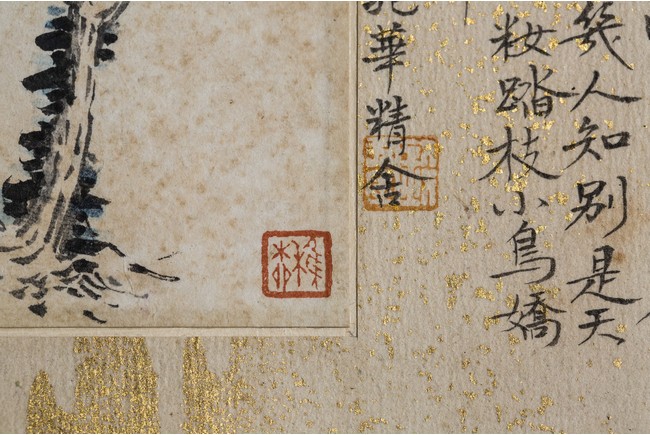 幾人知別是天
籹踏枝小鳥嬌
華精舍